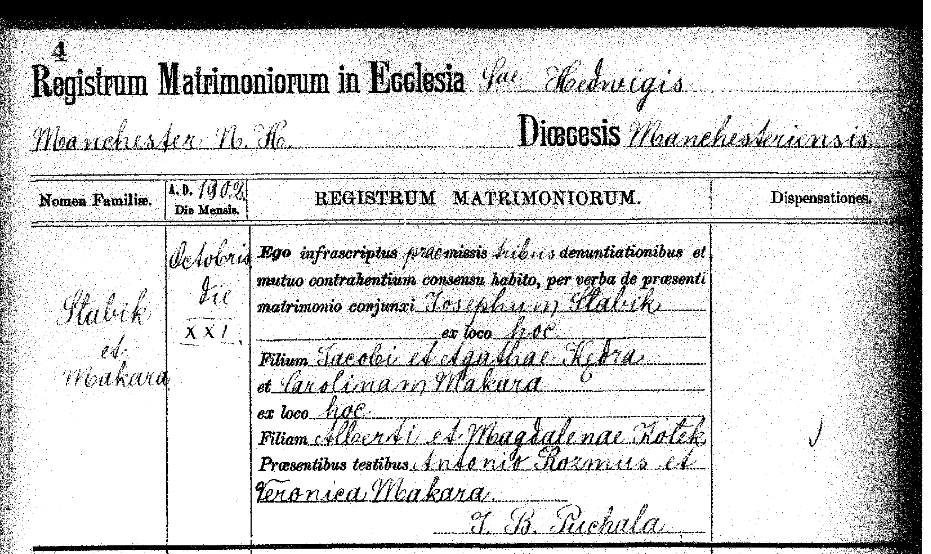 4
Registrum Matrimoniorum in Ecclesia Sae Hedwigis
Manchester N. H. Diœcesis Manchesteriensis
Nomen Familiæ.
A. D. 1902
Die Mensis.
REGISTRUM MATRIMONIORUM.
Dispensationes.
Slabik
et
Makara
Octobris
die
XXI.
Ego infrascriptus praemissis tribus denuntiationibus et
mutuo contrahentium consensu habito, per verba de præsenti
matrimonio conjunxi Josephum Slabik
ex loco hoc
Filium Jacobi et Agathae Kedra
et Carolinam Makara
ex loco hoc
Filiam Alberti et Magdalenae Kotek
Præsentibus testibus Antonio Rozmus et
Veronica Makara.
J. B. Puchala